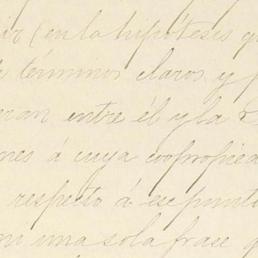 ir (en la hipótesis q
términos claros y p
eran entre él y la S
nes á cuya copropieda
respecto á ese punto
ni una sola frase q